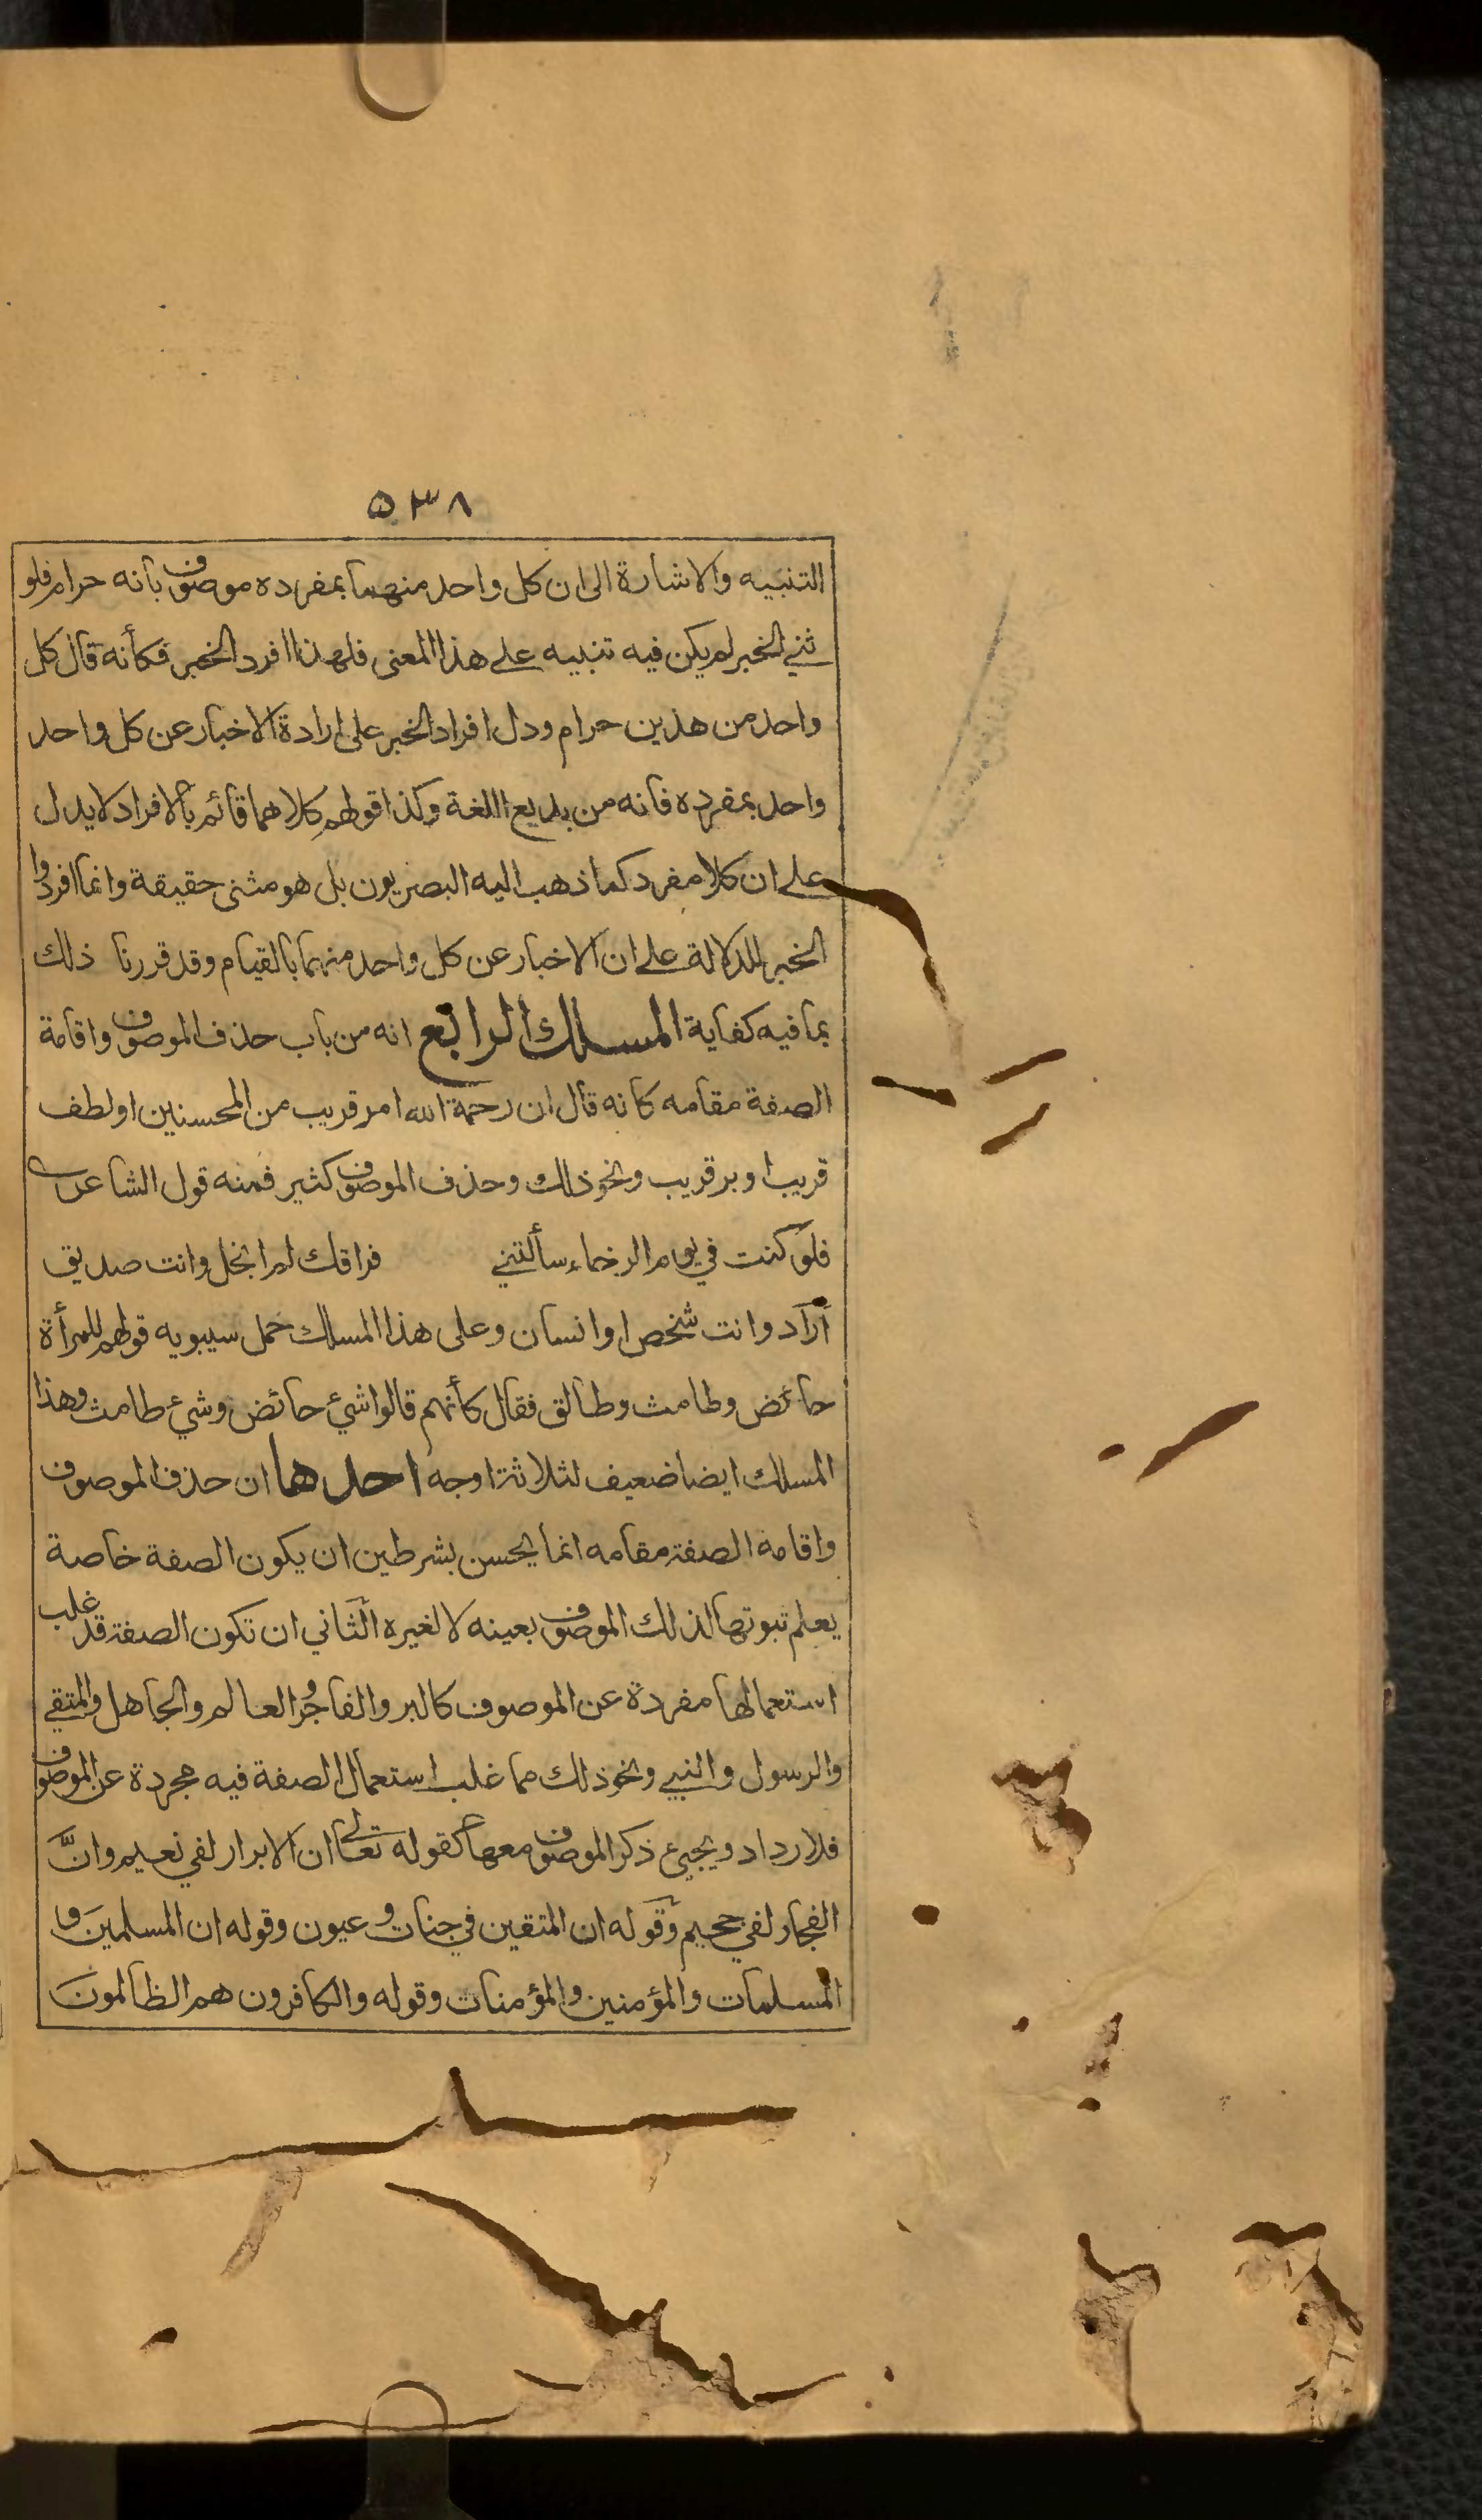 ٥٣٨
التنبيه والاشارة الى ان كل واحد منهما بمفرده موصوف بانه حرام فلو
ثني الخبر لم يكن فيه تنبيه على هذا المعنى فلهذا افرد الخبر فكأنه قال كل
واحد من هذين حرام ودل افراد الخبر على ارادة الاخبار عن كل واحد
واحد بمفرده فانه من بديع اللغة وكذا قولهم كلاهما قائم بالافراد لا يدل
على ان كلا مفرد كما ذهب اليه البصريون بل هو مثنى حقيقة وانما افردوا
الخبر للدلالة على ان الاخبار عن كل واحد منهما بالقيام وقد قررنا ذلك
بما فيه كفاية المسلك الرابع انه من باب حذف الموصوف واقامة
الصفة مقامه كانه قال ان رحمة الله امر قريب من المحسنين او لطف
قريب او بر قريب ونحو ذلك وحذف الموصوف كثير فمنه قول الشاعر
فلو كنت في يوم الرخاء سألتني فراقك لم ابخل وانت صديق
أراد وانت شخص او انسان وعلى هذا المسلك حمل سيبويه قولهم للمرأة
حائض وطامث وطالق فقال كأنهم قالوا شيء حائض وشيء طامث وهذا
المسلك ايضا ضعيف لثلاثة اوجه احدها ان حذف الموصوف
واقامة الصفة مقامه انما يحسن بشرطين ان يكون الصفة خاصة
يعلم ثبوتها لذلك الموصوف بعينه لا لغيره الثاني ان تكون الصفة قد غلب
استعمالها مفردة عن الموصوف كالبر والفاجر والعالم والجاهل والمتقي
والرسول والنبي ونحو ذلك مما غلب استعمال الصفة فيه مجردة عن الموصوف
فلا رداد ويجيئ ذكر الموصوف معها كقوله تعالى ان الابرار لفي نعيم وانَّ
الفجار لفي جحيم وقوله ان المتقين في جنات و عيون وقوله ان المسلمين و
المسلمات والمؤمنين والمؤمنات وقوله والكافرون هم الظالمون